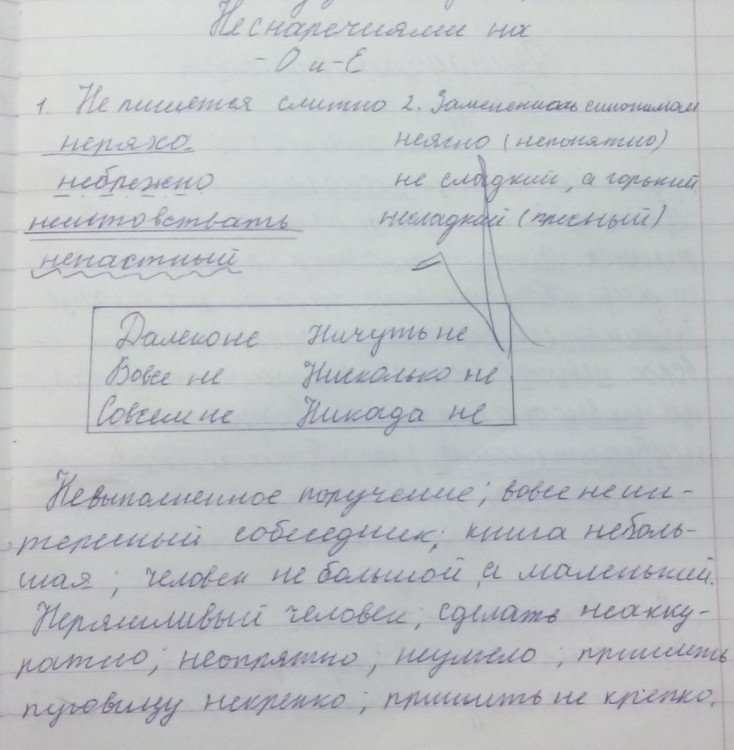 Не с наречиями на
-О и -Е
1. Не пишется слитно 2. Заменить синонимом
неряха неясно (непонятно)
небрежно не сладкий, а горький
неистовствать несладкий (пресный)
ненастный
Далеко не Ничуть не
Вовсе не Нисколько не
Совсем не Никада не
Невыполненное поручение; вовсе не ин-
тересный собеседник; книга неболь-
шая; человек не большой, а маленький.
Неряшливый человек; сделать неакку-
ратно; неопрятно; неумело; пришить
пуговицу некрепко; пришить не крепко,